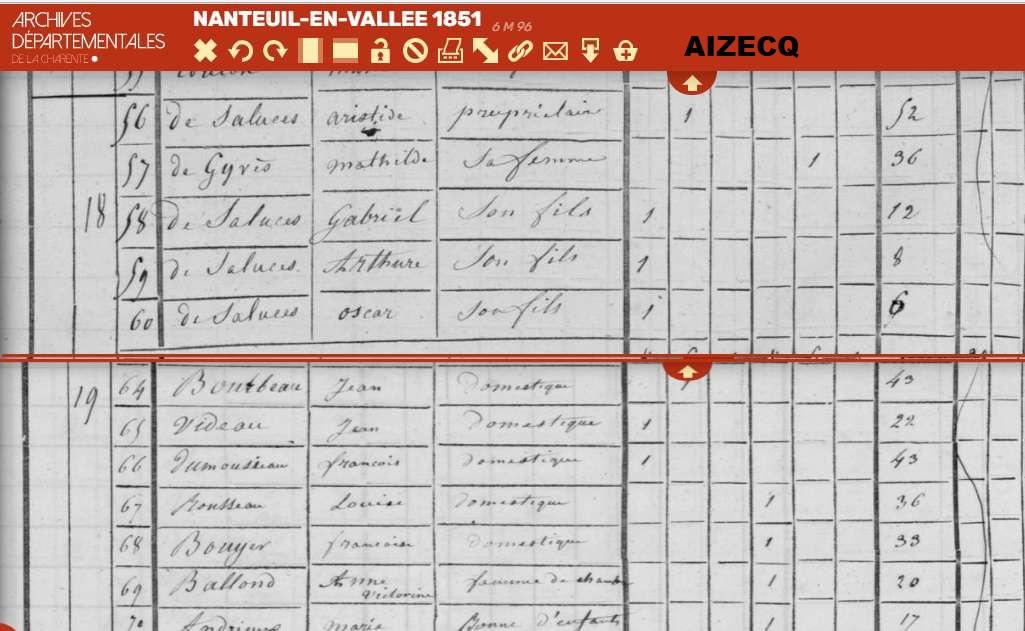 ARCHIVES
DÉPARTEMENTALES
DE LA CHARENTE
NANTEUIL-EN-VALLEE 1851 6 M 96
AIZECQ
56 de Saluces aristide propriétaire 1 52
57 de Gyvès mathilde Sa femme 1 36
18
58 de Saluces Gabriël Son fils 1 12
59 de Saluces Arthure Son fils 1 8
60 de Saluces oscar Son fils 1 6
19
64 Jean Domestique 1 43
65 Videau Jean Domestique 1 22
66 Dumousseau françois Domestique 1 43
67 Rousseau Louise Domestique 1 36
68 Bouyer françoise domestique 1 33
69 Ballond Anne Victorine femme de chambre 1 20
70 Andrieux maria Bonne d'enfants 1 17